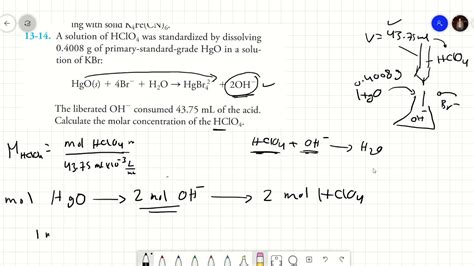 ing with solid K₄Fe(CN)₆.
13-14. A solution of HClO₄ was standardized by dissolving
0.4008 g of primary-standard-grade HgO in a solu-
tion of KBr:
HgO(s) + 4Br⁻ + H₂O → HgBr₄²⁻ + 2OH⁻
The liberated OH⁻ consumed 43.75 mL of the acid.
Calculate the molar concentration of the HClO₄.
V = 43.75 ml
HClO₄
0.4008g
HgO
Br⁻
OH⁻
M HClO₄ = mol HClO₄
43.75 ml x10⁻³ L
ml
HClO₄ + OH⁻ → H₂O
mol HgO → 2 mol OH⁻ → 2 mol HClO₄
1